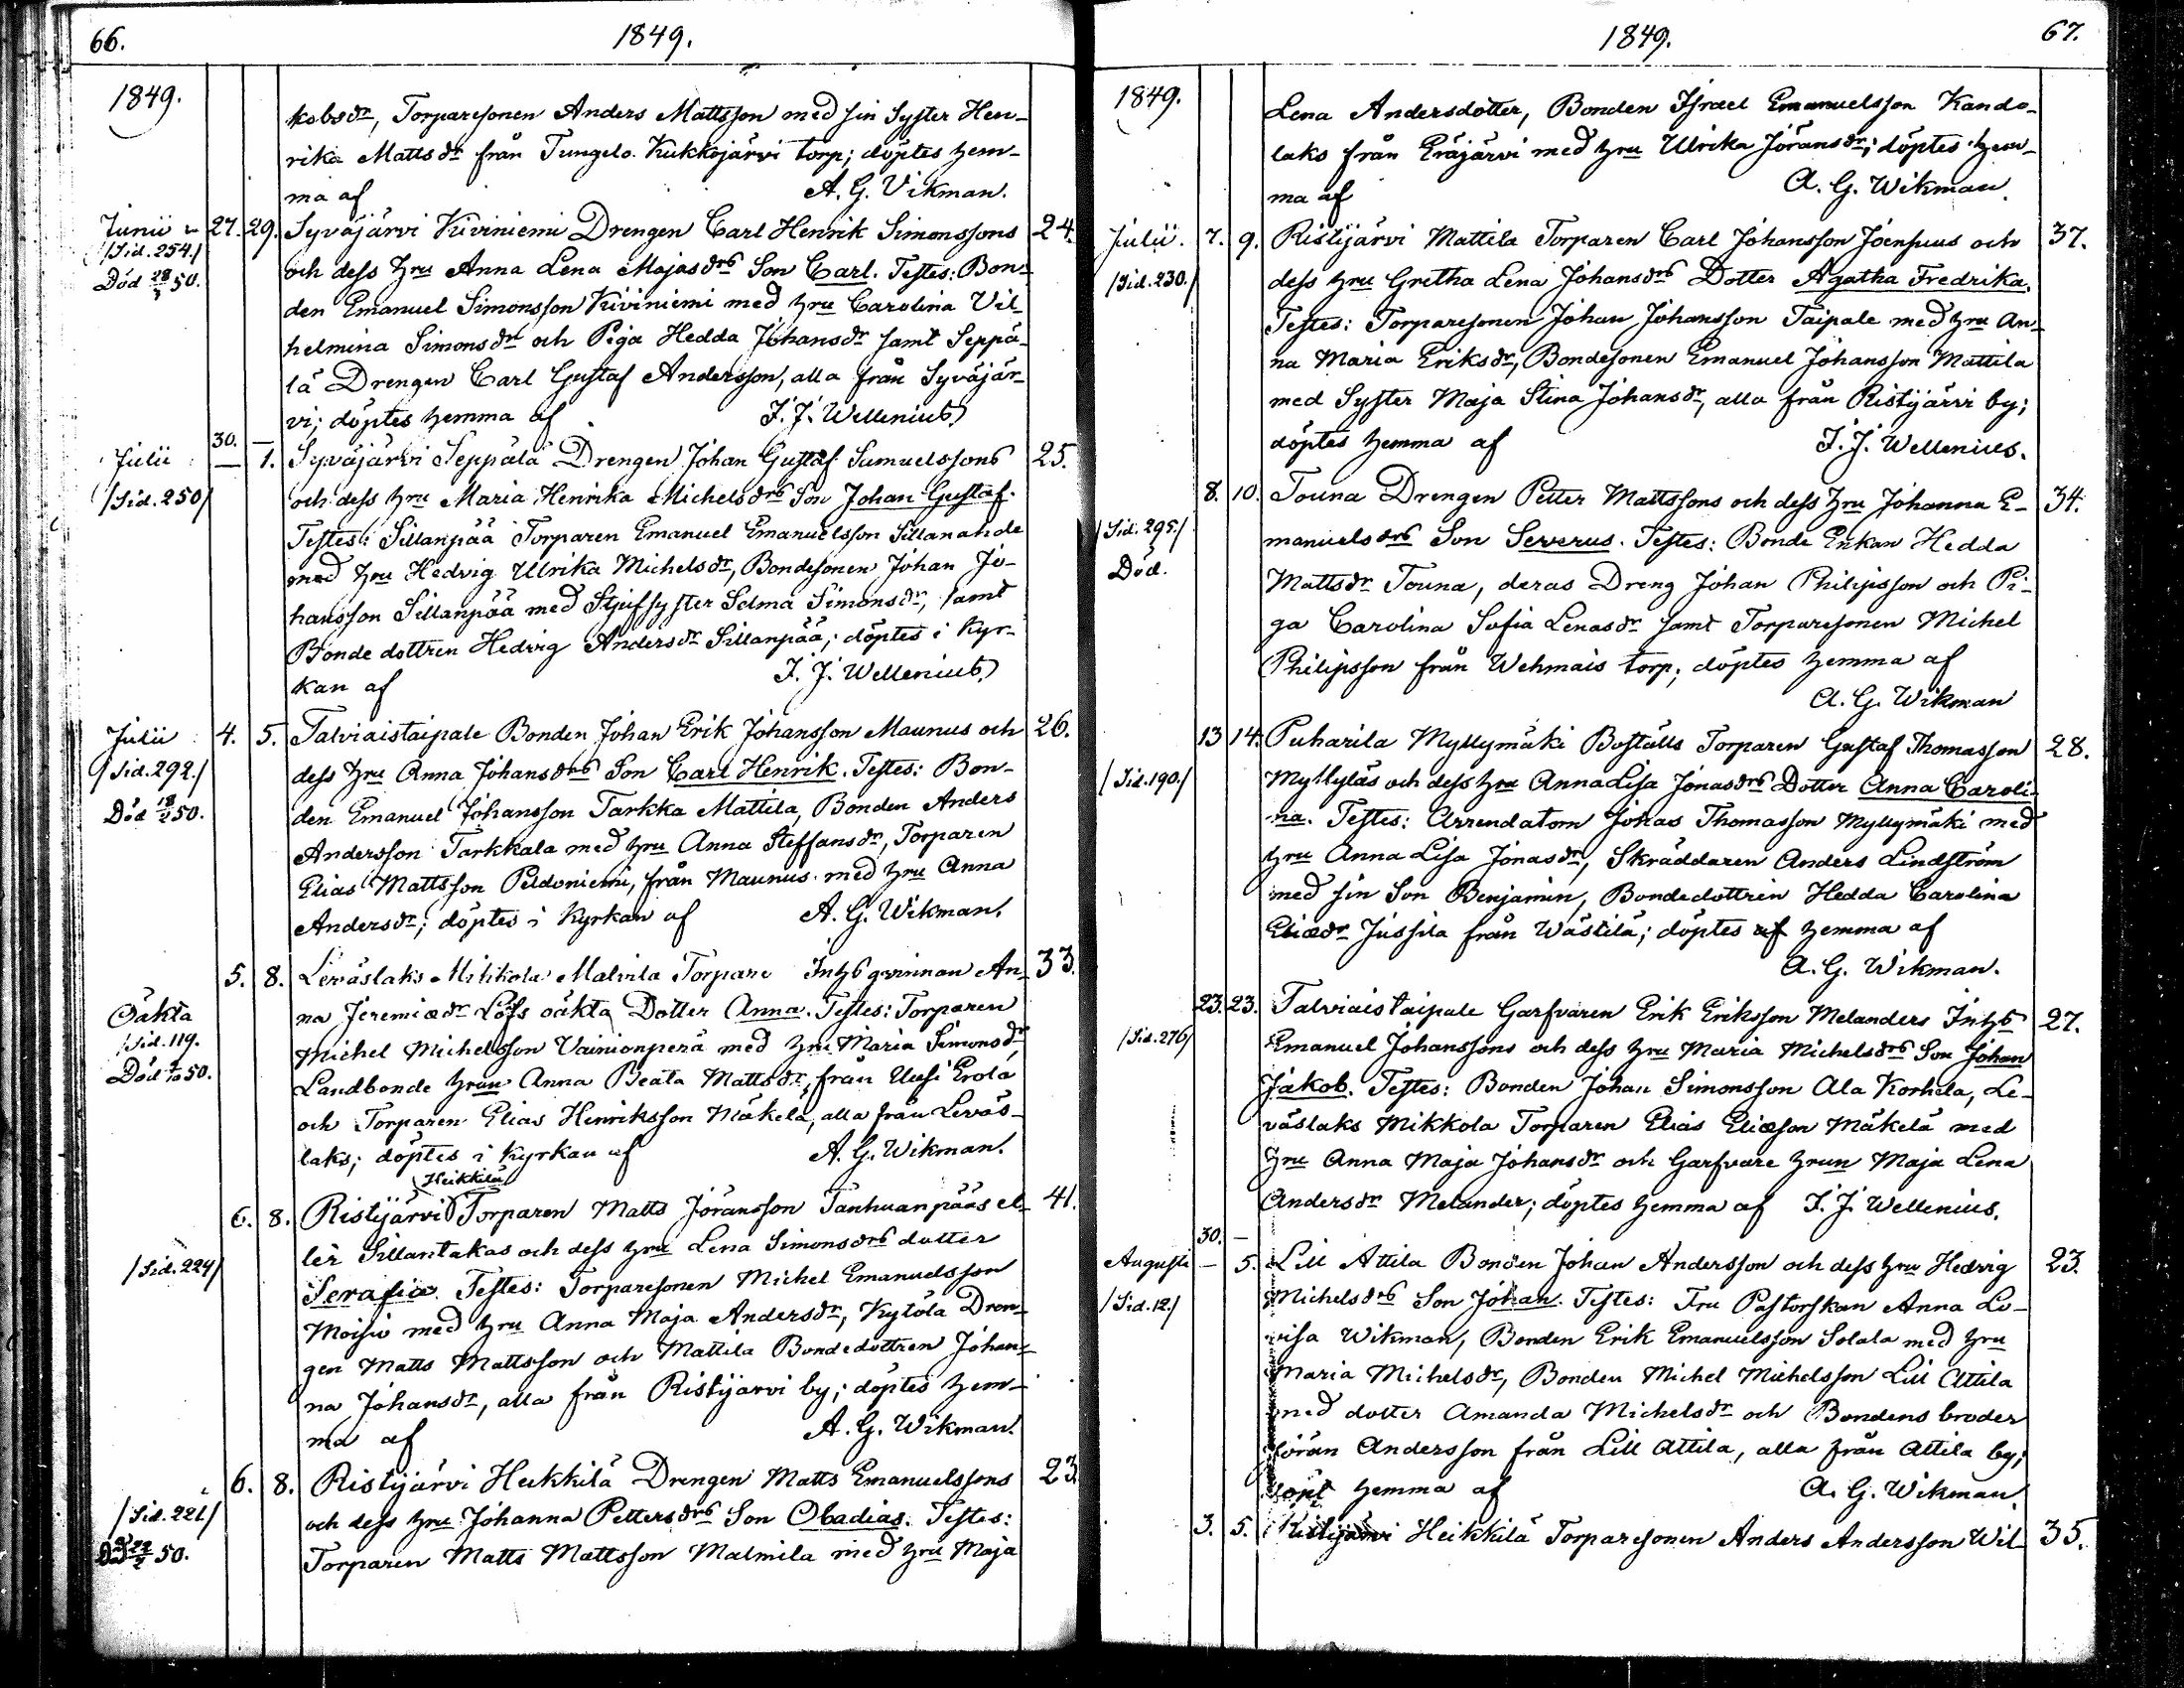 66.
1849.
1849.
kobsdr, Torparesonen Anders Mattsson med sin Syster Hen-
rika Mattsdr från Tungelo Kukkojärvi torp; döptes hem-
ma af A. G. Vikman.
Junii 27. 29. Syväjärvi Kiviniemi Drengen Carl Henrik Simonssons 24.
/Sid. 254./ och dess hru Anna Lena Majasdrs Son Carl. Testes: Bon-
Död 28/3 50. den Emanuel Simonsson Kiviniemi med hru Carolina Vil-
helmina Simonsdr och Piga Hedda Johansdr samt Seppä-
lä Drengen Carl Gustaf Andersson, alla från Syväjär-
vi; döptes hemma af J. J. Wellenius
30. —
Julii — 1. Syväjärvi Seppälä Drengen Johan Gustaf Samuelssons 25.
/Sid. 250/ och dess hru Maria Henrika Michelsdrs Son Johan Gustaf.
Testes: Sillanpää Torparen Emanuel Emanuelsson Sillanahde
med hru Hedvig Ulrika Michelsdr, Bondesonen Johan Jo-
hansson Sillanpää med Stjufsyster Selma Simonsdr, samt
Bonde dottren Hedvig Andersdr Sillanpää; döptes i Kyr-
kan af J. J. Wellenius.
Julii 4. 5. Talviaistaipale Bonden Johan Erik Johansson Maunus och 26.
/Sid. 292./ dess hru Anna Johansdrs Son Carl Henrik. Testes: Bon-
Död 18/2 50. den Emanuel Johansson Tarkka Mattila, Bonden Anders
Andersson Tarkkala med hru Anna Steffansdr, Torparen
Elias Mattsson Peldoniemi, från Maunus med hru Anna
Andersdr; döptes i Kyrkan af A. G. Wikman.
5. 8. Leväslaks Mikkola Malvila Torpare Inhs qvinnan An- 33.
Oäkta na Jeremiædr Löfs oäkta Dotter Anna. Testes: Torparen
/Sid. 119. Michel Michelsson Vainionperä med hru Maria Simonsdr,
Död 50. Landbonde hrun Anna Beata Mattsdr, från Uusi Erola
och Torparen Elias Henriksson Mäkelä, alla från Leväs-
laks; döptes i Kyrkan af A. G. Wikman.
Heikkilä
6. 8. Ristijärvi Torparen Matts Jöransson Tanhuanpääs el- 41.
ler Sillantakas och dess hru Lena Simonsdrs dotter
/Sid. 224/ Serafia. Testes: Torparesonen Michel Emanuelsson
Moisio med hru Anna Maja Andersdr, Kytölä Dren-
gen Matts Mattsson och Mattila Bondedottren Johan-
na Johansdr, alla från Ristijärvi by; döptes hem-
ma af A. G. Wikman.
6. 8. Ristijärvi Heikkilä Drengen Matts Emanuelssons 23.
/Sid. 221/ och dess hru Johanna Pettersdrs Son Obadias. Testes:
Död 50. Torparen Matts Mattsson Malmila med hru Maja
1849.
67.
1849.
Lena Andersdotter, Bonden Israel Emanuelsson Kando-
laks från Eräjärvi med hru Ulrika Jöransdr; döptes hem-
ma af A. G. Wikman.
Julii. 7. 9. Ristijärvi Mattila Torparen Carl Johansson Joensuus och 37.
/Sid. 230./ dess hru Gretha Lena Johansdrs Dotter Agatha Fredrika.
Testes: Torparesonen Johan Johansson Taipale med hru An-
na Maria Eriksdr, Bondesonen Emanuel Johansson Mattila
med Syster Maja Stina Johansdr, alla från Ristijärvi by;
döptes hemma af J. J. Wellenius.
8. 10. Touna Drengen Petter Mattssons och dess hru Johanna E- 34.
/Sid. 295./ manuelsdrs Son Severus. Testes: Bonde Enkan Hedda
Död. Mattsdr Touna, deras Dreng Johan Philipsson och Pi-
ga Carolina Sofia Lenasdr samt Torparesonen Michel
Philipsson från Wehmais torp; döptes hemma af
A. G. Wikman
13 14. Puharila Myllymäki Boställs Torparen Gustaf Thomasson 28.
/Sid. 190./ Myllyläs och dess hru Anna Lisa Jonasdrs Dotter Anna Caroli-
na. Testes: Arrendatorn Johas Thomasson Myllymäki med
hru Anna Lisa Jonasdr, Skräddaren Anders Lindström
med sin Son Benjamin, Bondedottren Hedda Carolina
Eliædr Jussila från Wästilä; döptes af hemma af
A. G. Wikman.
23. 23. Talviaistaipale Garfvaren Erik Eriksson Melanders Inhs 27.
/Sid. 276/ Emanuel Johanssons och dess hru Maria Michelsdrs Son Johan
Jakob. Testes: Bonden Johan Simonsson Ala Korhela, Le-
väslaks Mikkola Torparen Elias Eliæson Mäkelä med
hru Anna Maja Johansdr och Garfvare hrun Maja Lena
Andersdr Melander; döptes hemma af J. J. Wellenius.
30. —
Augusti — 5. Lill Attila Bonden Johan Andersson och dess hru Hedvig 23.
/Sid. 12./ Michelsdrs Son Johan. Testes: Fru Pastorskan Anna Lo-
visa Wikman, Bonden Erik Emanuelsson Solala med hru
Maria Michelsdr, Bonden Michel Michelsson Lill Attila
med dotter Amanda Michelsdr och Bondens broder
Jöran Andersson från Lill Attila, alla från Attila by;
döpt hemma af A. G. Wikman.
3. 5. Ristijärvi Heikkilä Torparesonen Anders Andersson Wil- 35.